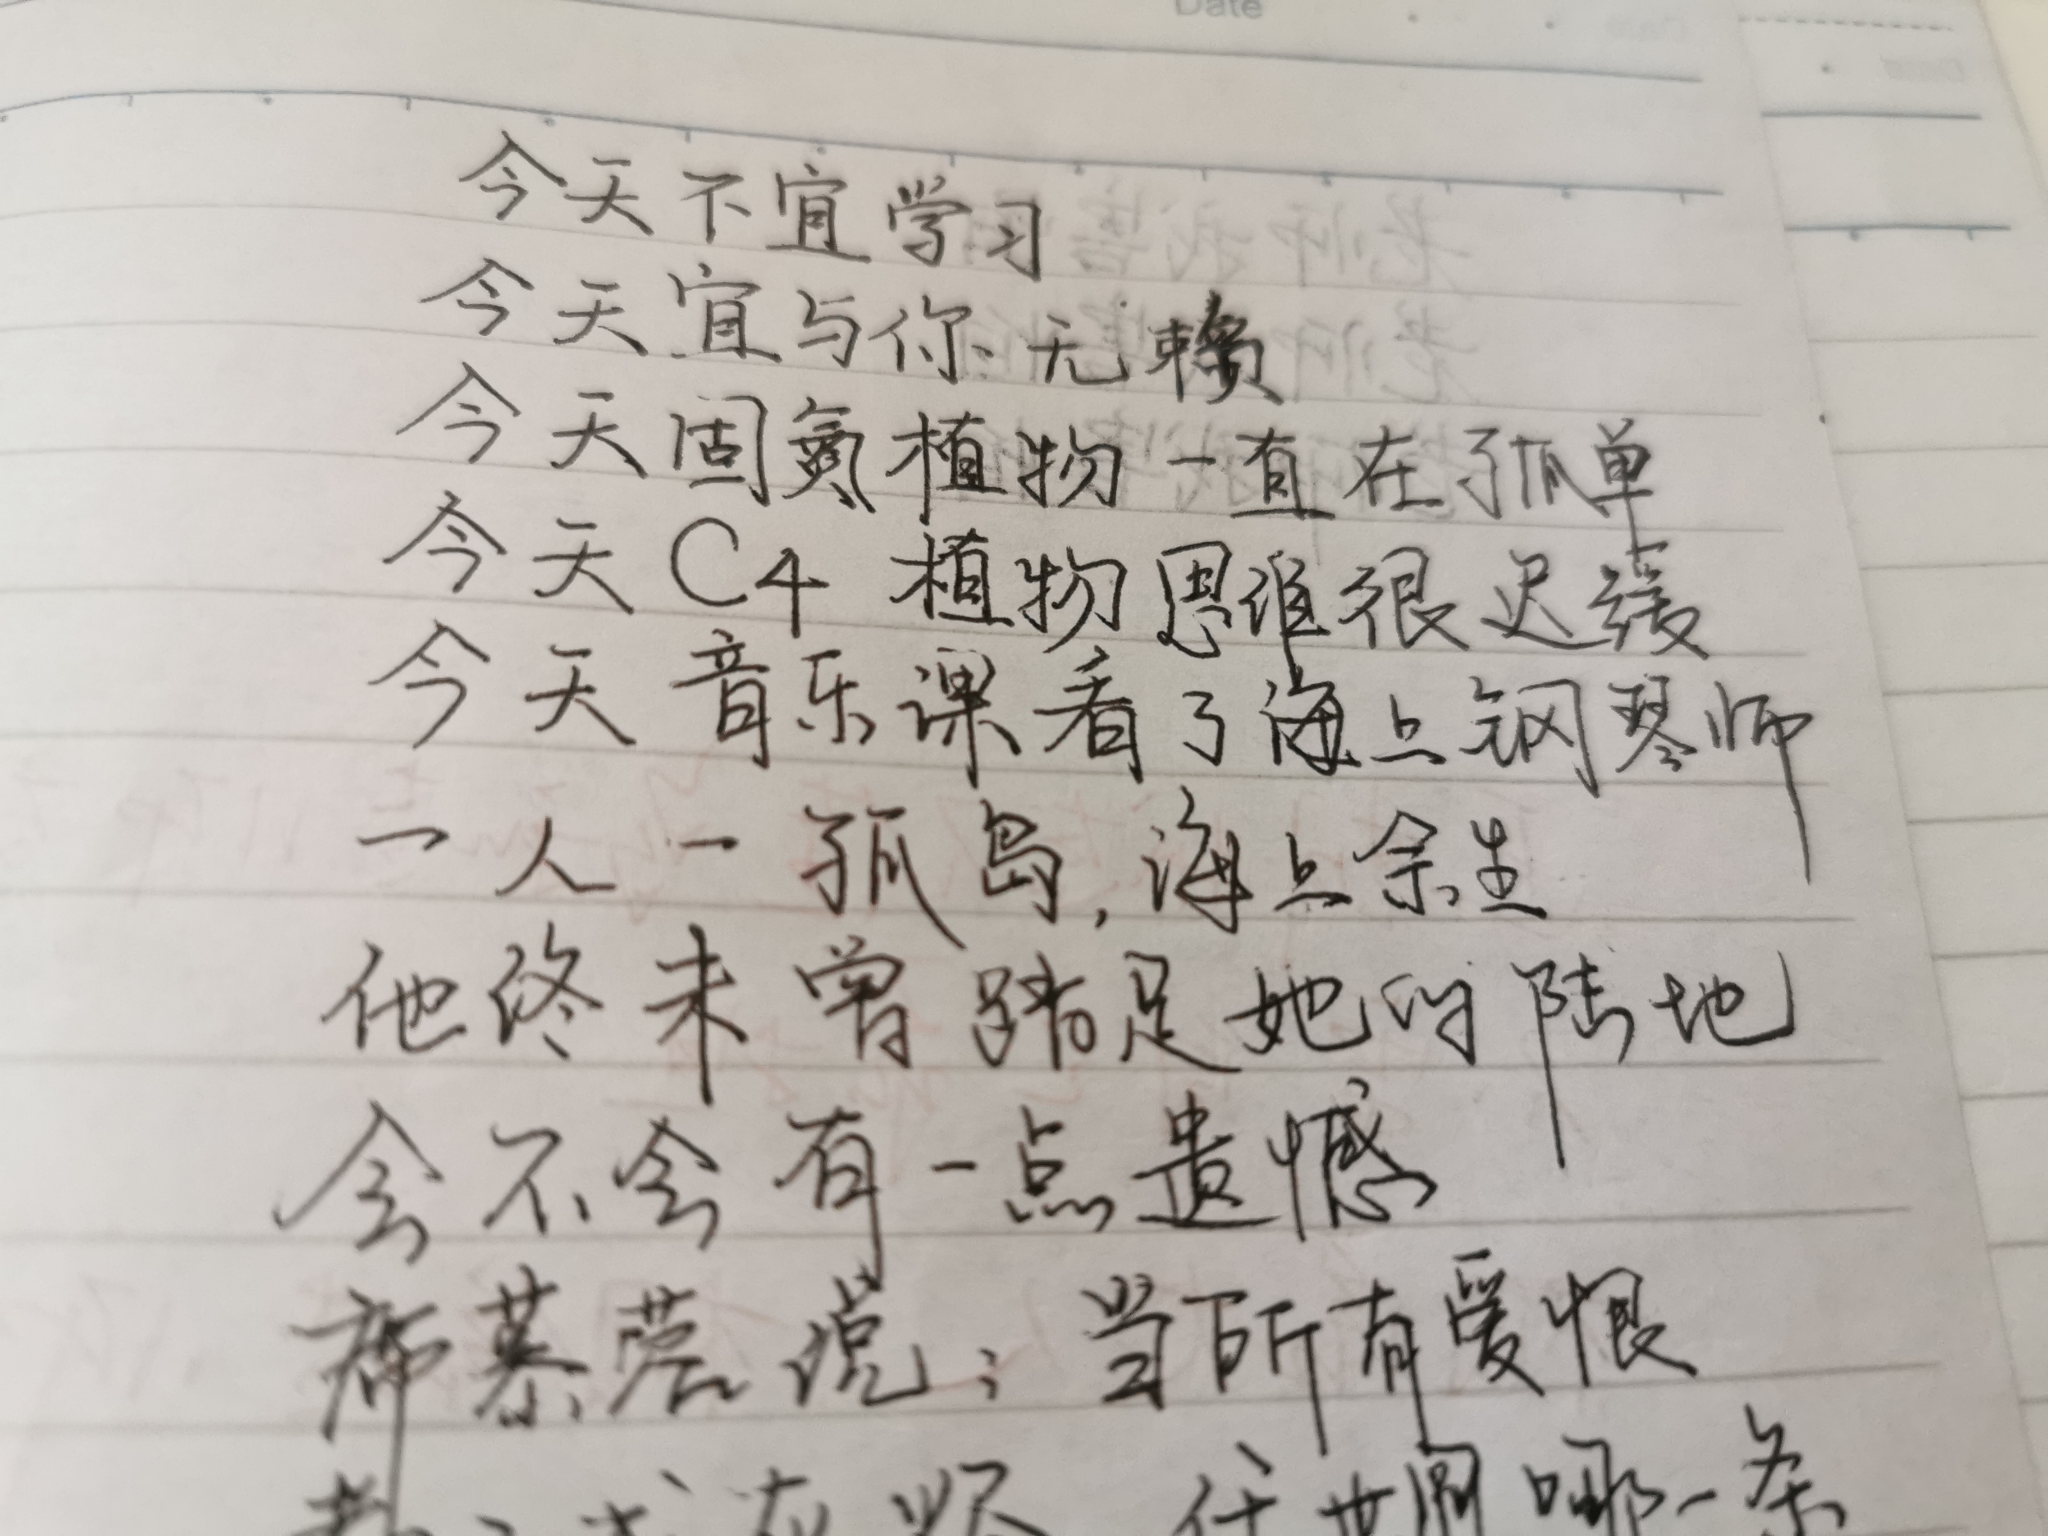 Date
今天不宜学习
今天宜与你无赖
今天固氮植物一直在孤单
今天C4植物思维很迟缓
今天音乐课看了海上钢琴师
一人一孤岛,海上余生
他终未曾踏足她的陆地
会不会有一点遗憾
席慕蓉说:当所有爱恨
哪一条